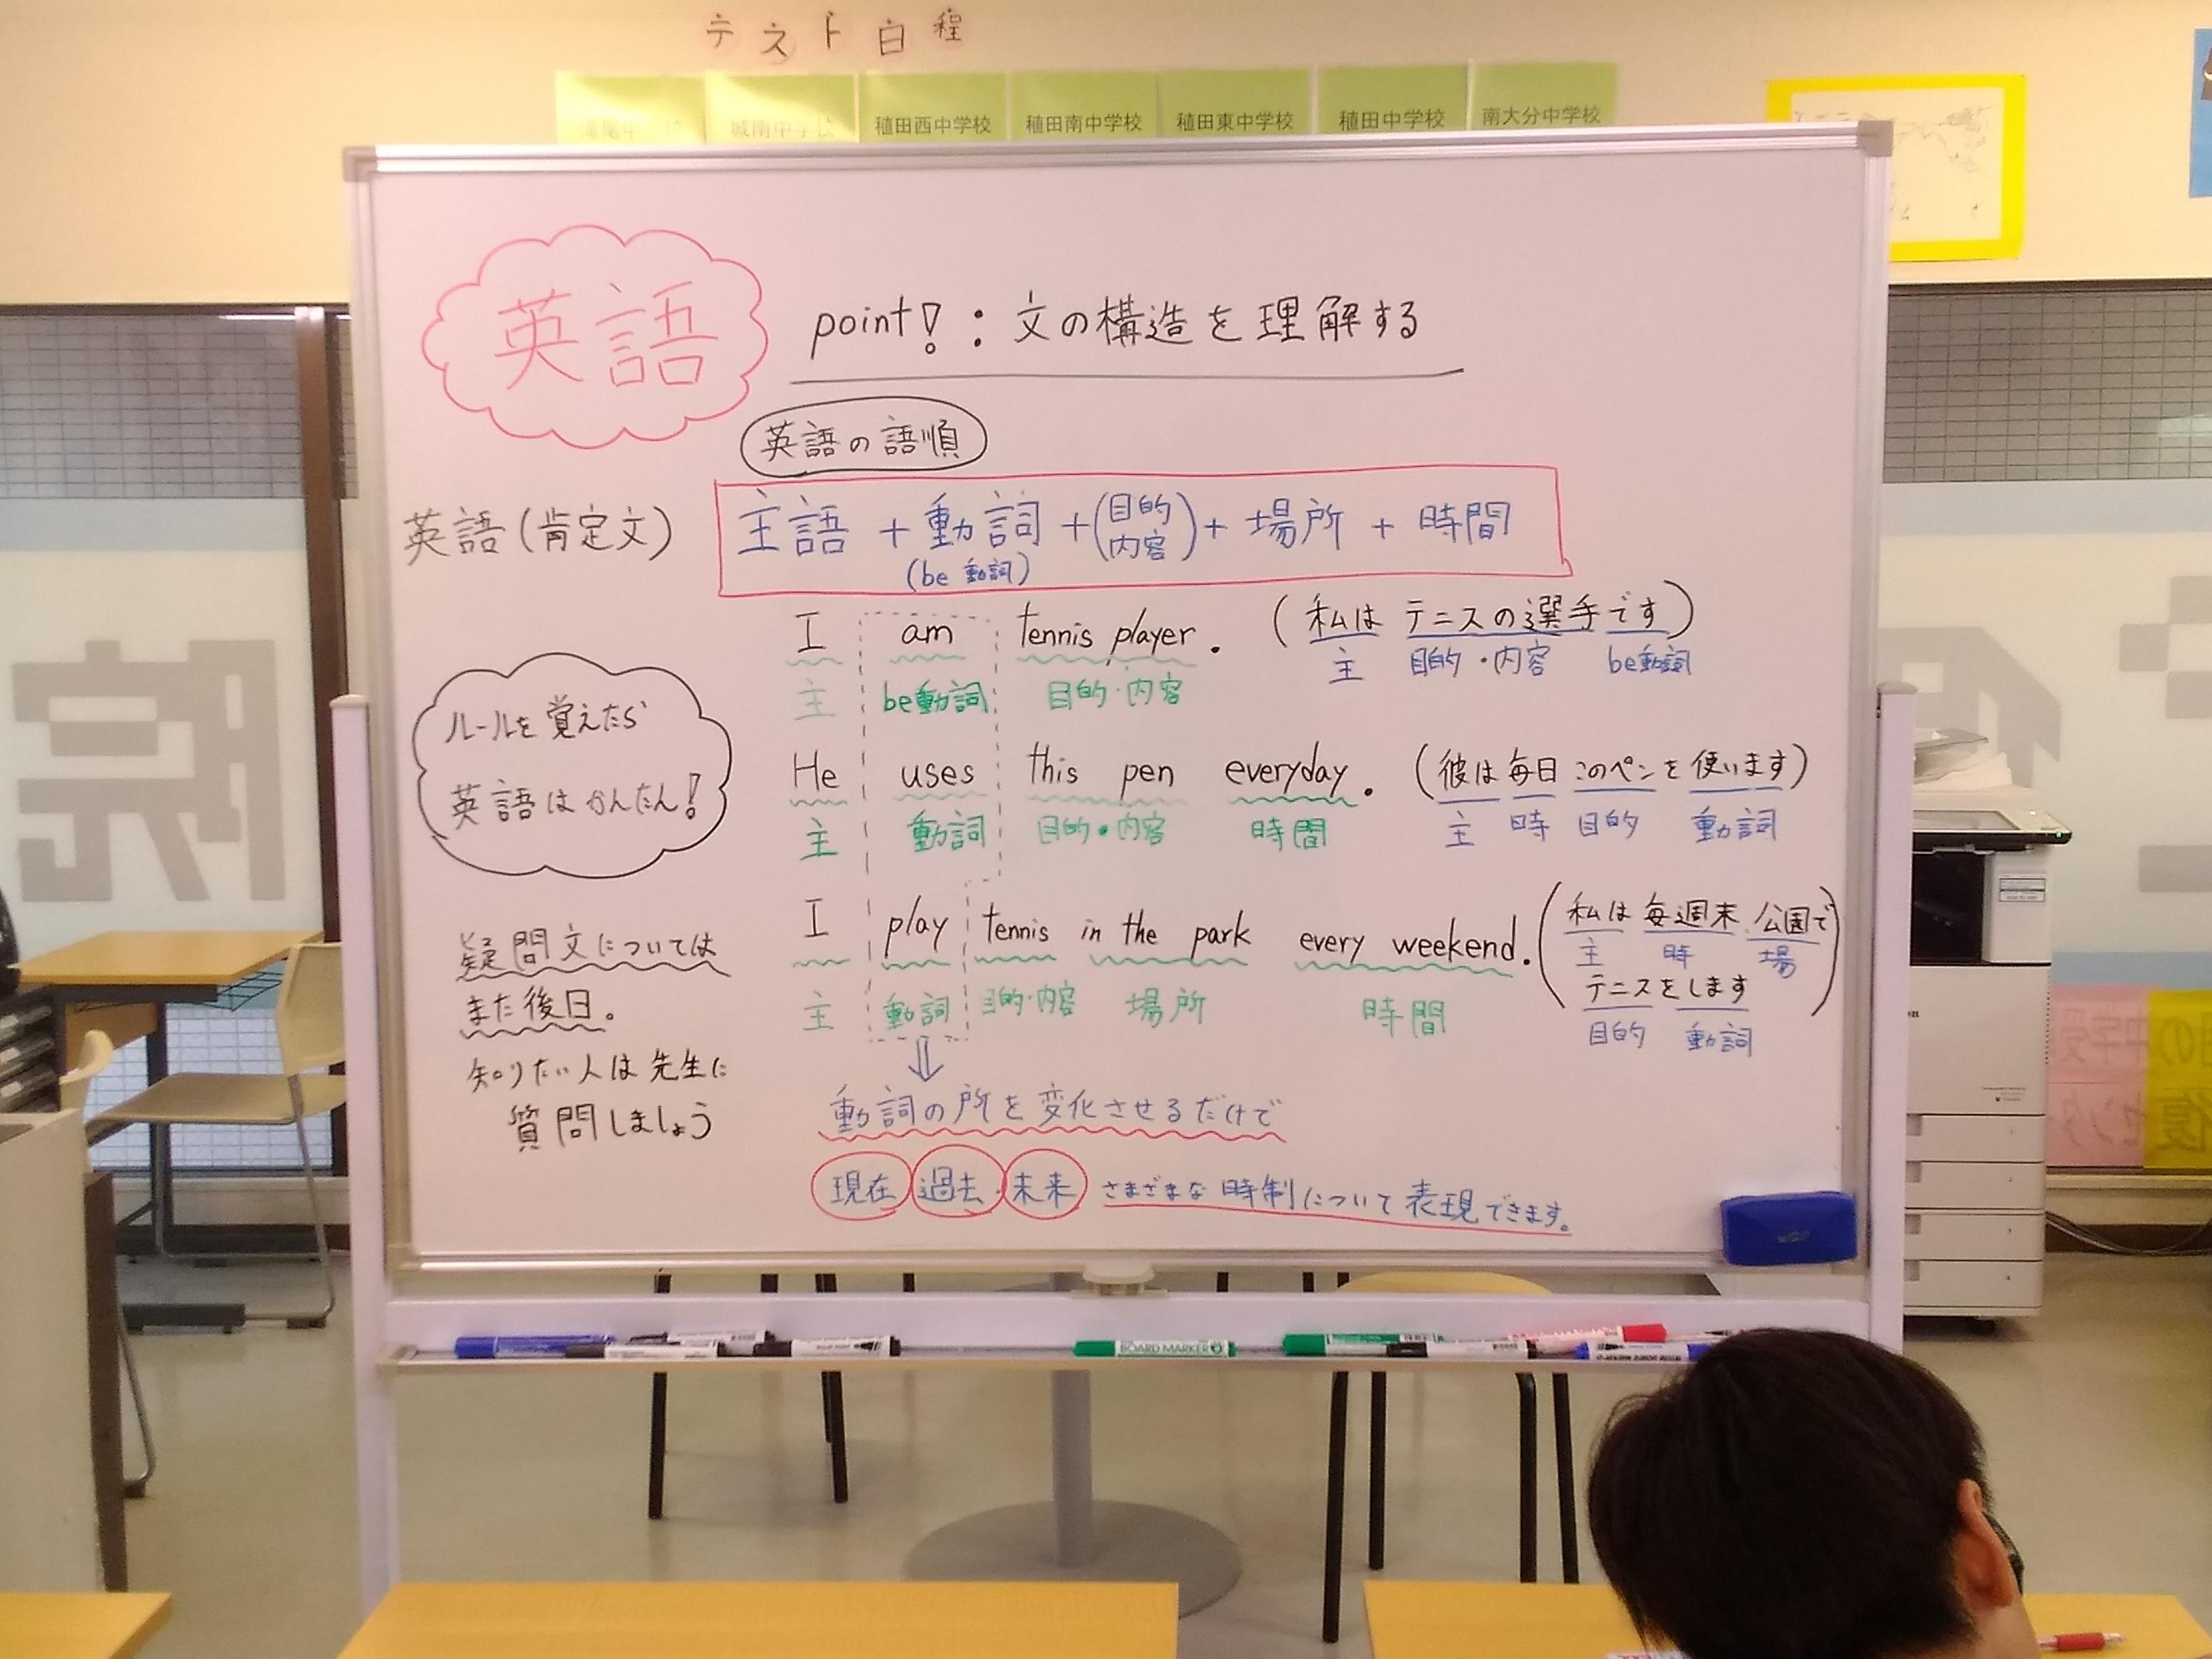 テスト日程
城南中学校 稙田西中学校 稙田南中学校 稙田東中学校 稙田中学校 南大分中学校
英語
point!：文の構造を理解する
英語の語順
英語(肯定文)
主語 + 動詞 + (目的 内容) + 場所 + 時間
(be 動詞)
I am tennis player. (私は テニスの選手です)
主 be動詞 目的・内容 主 目的・内容 be動詞
ルールを覚えたら
英語はかんたん!
He uses this pen everyday. (彼は毎日このペンを使います)
主 動詞 目的・内容 時間 主 時 目的 動詞
I play tennis in the park every weekend. (私は毎週末 公園で
主 時 場
テニスをします)
目的 動詞
主 動詞 目的・内容 場所 時間
疑問文については
また後日。
知りたい人は先生に
質問しましょう
動詞の所を変化させるだけで
現在 過去・未来 さまざまな時制について表現できます。
BOARD MARKER
院